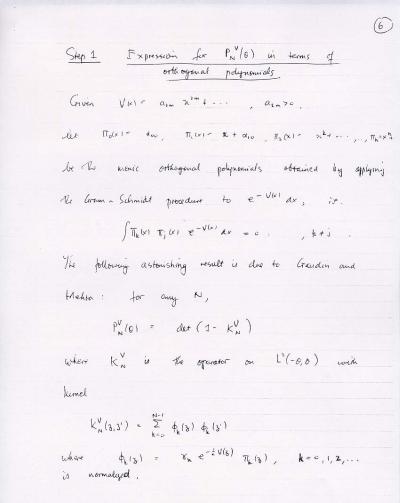 6
Step 1 Expression for P_N^V(θ) in terms of
orthogonal polynomials.
Given V(x) = a_{2m} x^{2m} + ... , a_{2m} > 0 .
let π_0(x) = , π_1(x) = x + α_{10} , π_2(x) = x^2 + ... , ..,
be the monic orthogonal polynomials obtained by applying
the Gram-Schmidt procedure to e^{-V(x)} dx , i.e.
∫ π_k(x) π_j(x) e^{-V(x)} dx = 0 . , k ≠ j .
The following astonishing result is due to Gaudin and
Mehta : for any N,
P_N^V(θ) = det (1 - K_N^V)
where K_N^V is the operator on L^2(-θ,θ) with
kernel
K_N^V(z,z') = Σ_{k=0}^{N-1} φ_k(z) φ_k(z')
where φ_k(z) = γ_k e^{-½V(z)} π_k(z) , k = 0, 1, 2, ...
is normalized .